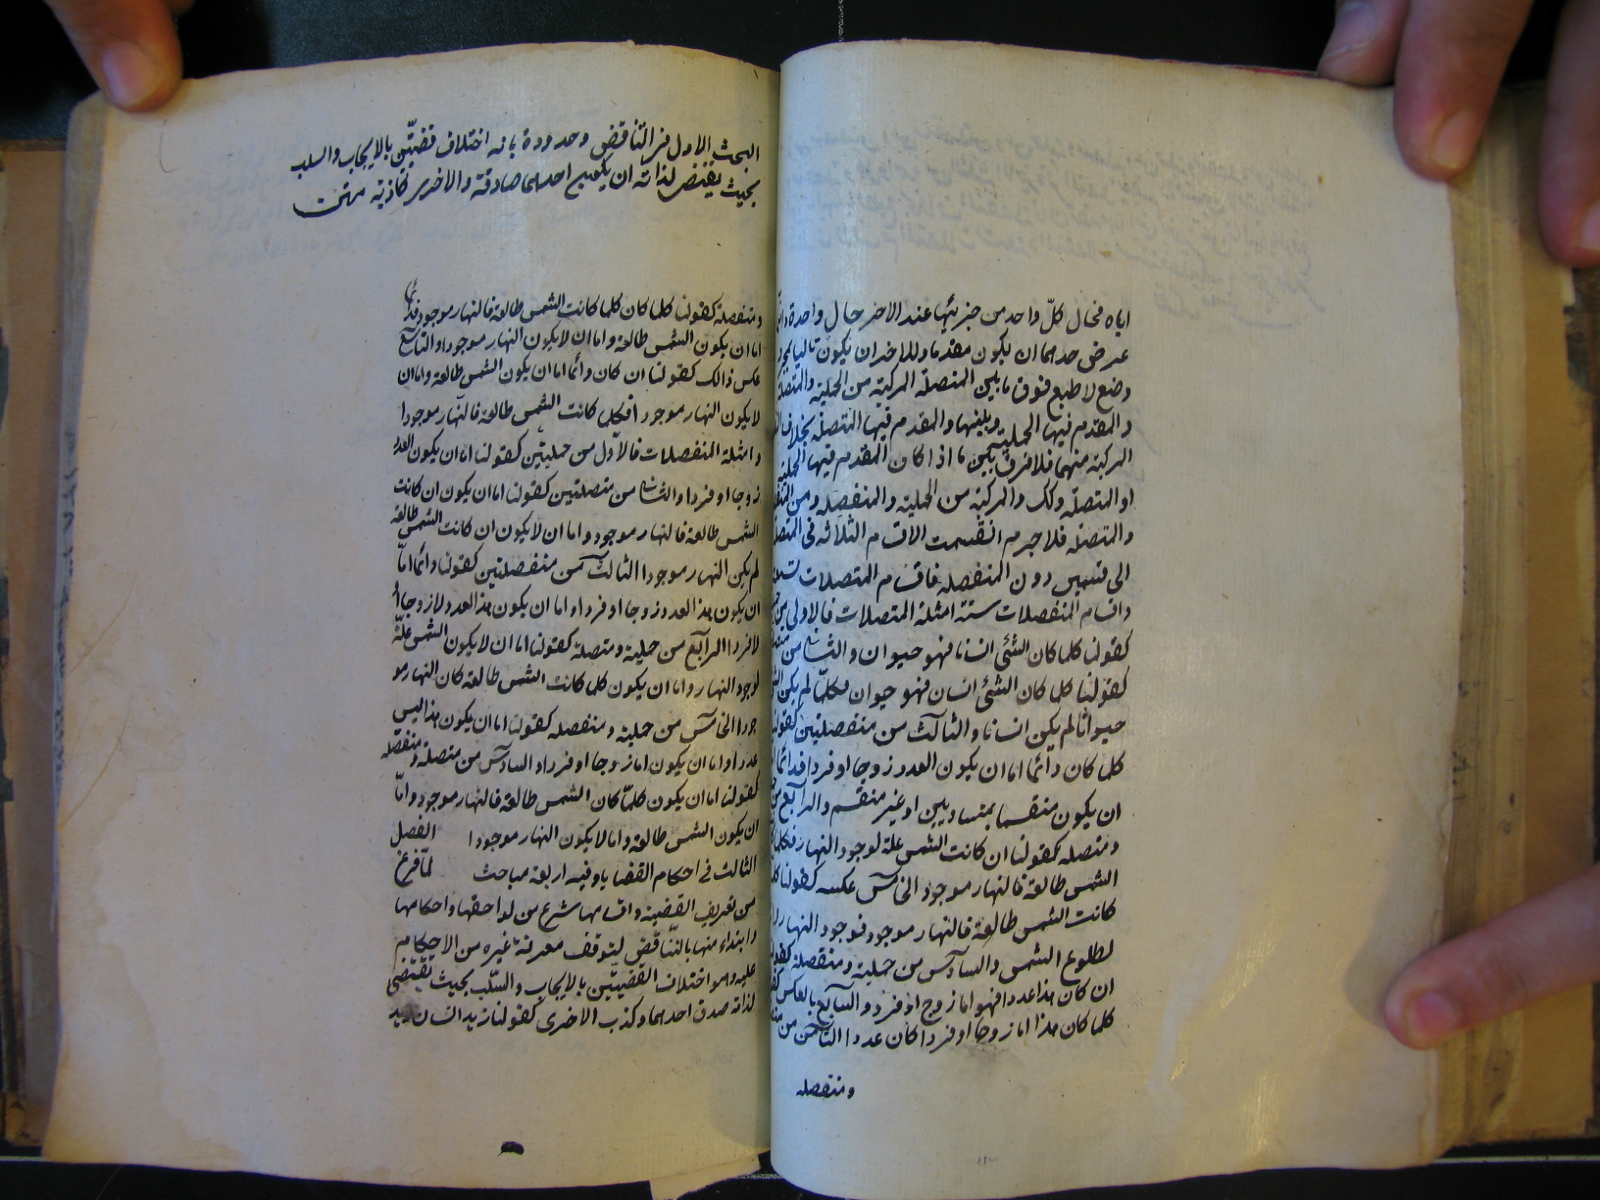 اياه فحال كلّ واحد من جزئيها عند الاخر حال واحدة وانما
عرض لاحدهما ان يكون مقدما وللاخر ان يكون تاليا بمجرد
وضع لا طبع ففرق ما بين المتصلة المركبة من الحملية والمتصلة
والمقدم فيها الحملية وبينها والمقدم فيها المتصلة بخلاف
المركبة منهما فلا فرق بين ما اذا كان المقدم فيها الحملية
او المتصلة وكذلك والمركبة من الحملية والمنفصلة ومن المنفصلة
والمتصلة فلا جرم انقسمت الاقسام الثلاثه فى المتصلة
الى قسمين دون المنفصلة فاقسام المتصلات تسعة
واقسام المنفصلات ستة امثلة المتصلات فالاولى من
كقولنا كلما كان الشئ انسانا فهو حيوان والثانى من
كقولنا كلما كان الشئ انسان فهو حيوان فكلما لم يكن الشئ
حيوانا لم يكن انسانا والثالث من منفصلتين كقولنا
كلما كان دائما اما ان يكون العدد زوجا او فردا فدائما
ان يكون منقسما بمتساويين او غير منقسم والرابع من
ومتصلة كقولنا ان كانت الشمس علة لوجود النهار فكلما
الشمس طالعة فالنهار موجود الخامس عكسه كقولنا كلما
كانت الشمس طالعة فالنهار موجود فوجود النهار
لطلوع الشمس والسادس من حملية ومنفصلة كقولنا
ان كان هذا عددا فهو اما زوج او فرد والسابع بالعكس
كلما كان هذا اما زوجا او فردا كان عددا الثامن من
ومنفصله
البحث الاول فى التناقض وحدوده بانه اختلاف قضيتين بالايجاب والسلب
بحيث يقتضى لذاته ان يكون احدهما صادقة والاخرى كاذبة متن
ومنفصلة كقولنا كلما كان كلما كانت الشمس طالعة فالنهار موجود فدائما
اما ان يكون الشمس طالعة واما ان لا يكون النهار موجودا والتاسع
عكس ذالك كقولنا ان كان دائما اما ان يكون الشمس طالعة واما ان
لا يكون النهار موجودا فكلما كانت الشمس طالعة فالنهار موجودا
وامثلة المنفصلات فالاول من حمليتين كقولنا اما ان يكون العدد
زوجا او فردا والثانى من متصلتين كقولنا اما ان يكون ان كانت
الشمس طالعة فالنهار موجود واما ان لا يكون ان كانت الشمس طالعة
لم يكن النهار موجودا الثالث من منفصلتين كقولنا دائما امّا
ان يكون هذا العدد زوجا او فردا واما ان يكون هذا العدد لا زوجا او
لا فردا الرابع من حملية ومتصلة كقولنا اما ان لا يكون الشمس علّة
لوجود النهار واما ان يكون كلما كانت الشمس طالعة كان النهار مو
جودا الخامس من حملية ومنفصله كقولنا اما ان يكون هذا ليس
عددا واما ان يكون اما زوجا او فردا والسادس من متصلة ومنفصلة
كقولنا اما ان يكون كلما كان الشمس طالعة فالنهار موجود وامّا
ان يكون الشمس طالعة واما لا يكون النهار موجودا الفصل
الثالث فى احكام القضايا وفيه اربعة مباحث لمّا فرغ
من تعريف القضية واقسامها شرع من لواحقها واحكامها
وابتداء منها بالتناقض ليتوقف معرفة غيره من الاحكام
عليه وهو اختلاف القضيتين بالايجاب والسلب بحيث يقتضى
لذاته صدق احدهما وكذب الاخرى كقولنا زيد انسان زيد